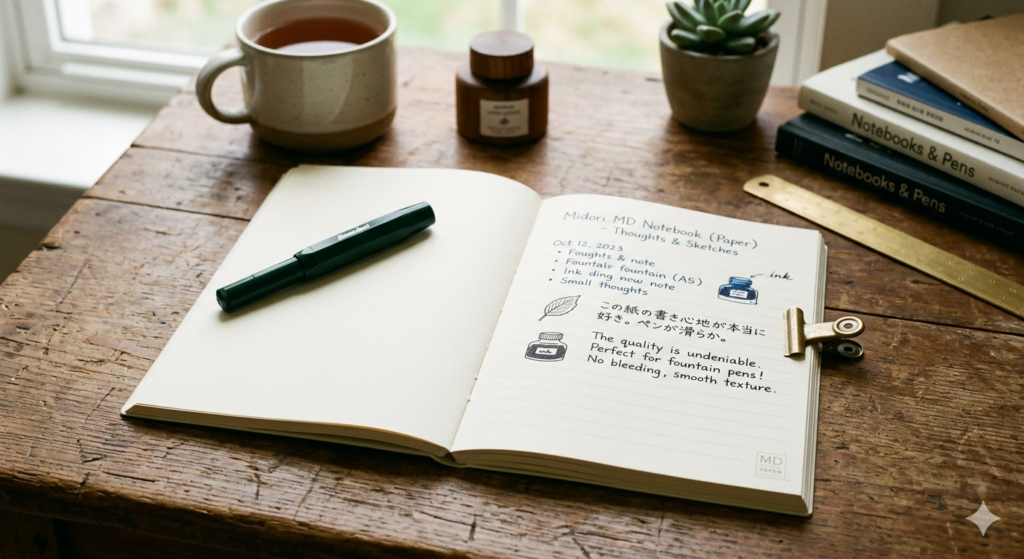 Midori MD Notebook (Paper)
- Thoughts & Sketches
Oct 12, 2023
• Foughts & note
• Fountair fountain (A5)
• Ink ding now note
• Small thoughts
ink
この紙の書き心地が本当に
好き。ペンが滑らか。
The quality is undeniable.
Perfect for fountain pens!
No bleeding, smooth texture.
MD
PAPER
Notebooks & Pens
Notebooks & Pens